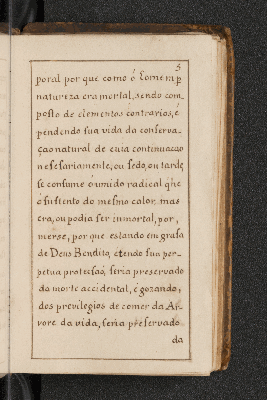 5
poral por que como ó home m p
natureza era mortal, sendo com
posto de elementos contrarios, é
pendendo sua vida da conserva
çaõ natural de cuia continuacaõ
nesesariamente, ou sedo, ou tarde,
se consume ó umido radical q he
ó sustento do mesmo calor, mas
era, ou podia ser inmortal, por,
merse, por que estando em grasa
de Deus Bendito, etendo sua per-
petua protesaõ, seria preservado
da morte accidental, é gozando,
dos previlegios de comer da Ar
vore da vida, seria preservado
da